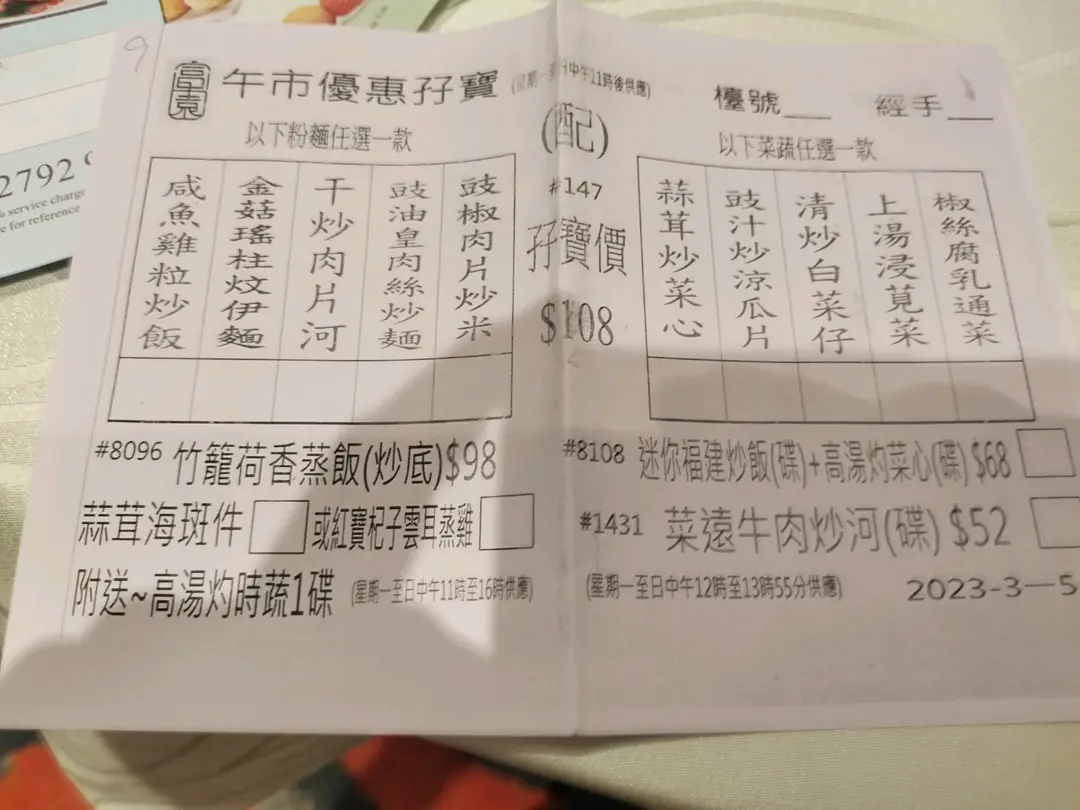 9
富嘉園 午市優惠孖寶 (星期一至日中午11時後供應) 檯號___ 經手___
以下粉麵任選一款 (配) 以下菜蔬任選一款
咸魚雞粒炒飯
金菇瑤柱炆伊麵
干炒肉片河
豉油皇肉絲炒麵
豉椒肉片炒米
#147
孖寶價
$108
蒜茸炒菜心
豉汁炒涼瓜片
清炒白菜仔
上湯浸莧菜
椒絲腐乳通菜
#8096 竹籠荷香蒸飯(炒底)$98
蒜茸海斑件 或紅寶杞子雲耳蒸雞
附送~高湯灼時蔬1碟 (星期一至日中午11時至16時供應)
#8108 迷你福建炒飯(碟)+高湯灼菜心(碟) $68
#1431 菜遠牛肉炒河(碟) $52
(星期一至日中午12時至13時55分供應) 2023-3—5
2792
% service charge
e for reference